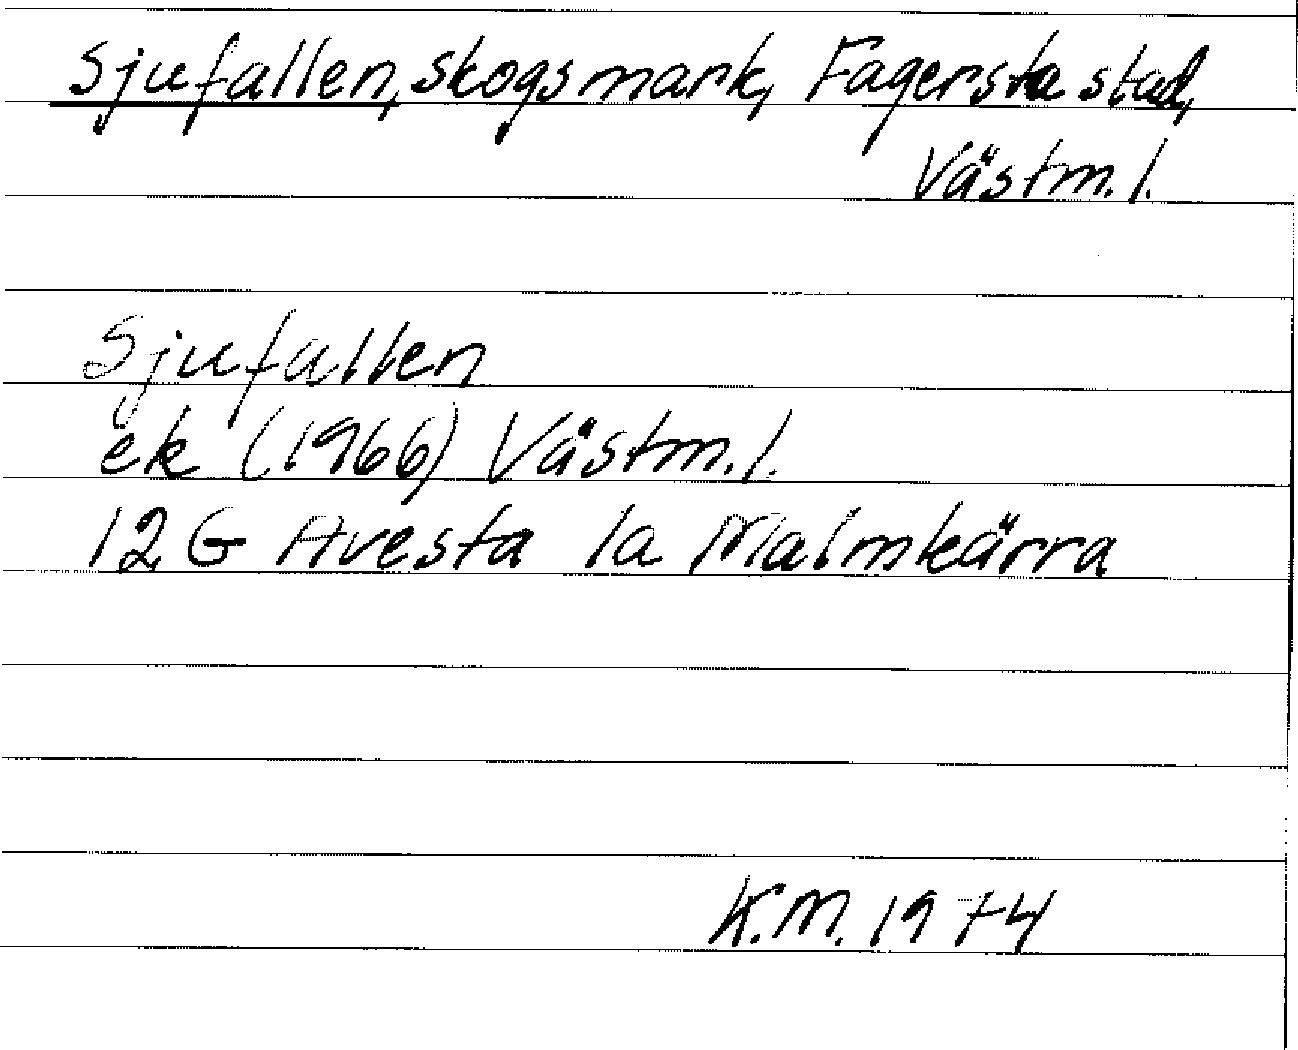 Sjufallen, skogsmark, Fagersta stad,
Västm. l.
Sjufallen
ek (1966) Västm. l.
12 G Avesta 1a Malmkärra
K.M. 1974